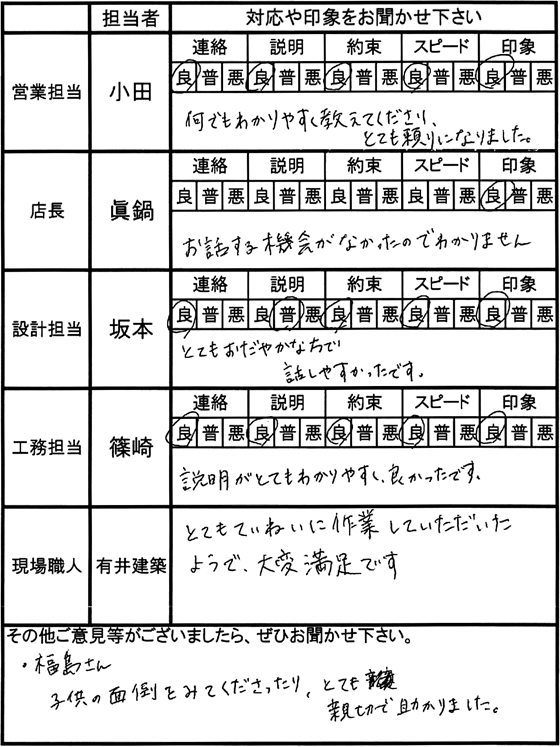 担当者 対応や印象をお聞かせ下さい
連絡 説明 約束 スピード 印象
良 普 悪 良 普 悪 良 普 悪 良 普 悪 良 普 悪
営業担当 小田
何でもわかりやすく教えてくださり、
とても頼りになりました。
連絡 説明 約束 スピード 印象
良 普 悪 良 普 悪 良 普 悪 良 普 悪 良 普 悪
店長 眞鍋
お話する機会がなかったのでわかりません
連絡 説明 約束 スピード 印象
良 普 悪 良 普 悪 良 普 悪 良 普 悪 良 普 悪
設計担当 坂本
とてもおだやかな方で
話しやすかったです。
連絡 説明 約束 スピード 印象
良 普 悪 良 普 悪 良 普 悪 良 普 悪 良 普 悪
工務担当 篠崎
説明がとてもわかりやすく、良かったです。
現場職人 有井建築
とてもていねいに作業していただいた
ようで、大変満足です
その他ご意見等がございましたら、ぜひお聞かせ下さい。
・福島さん
子供の面倒をみてくださったり、とても
親切で助かりました。